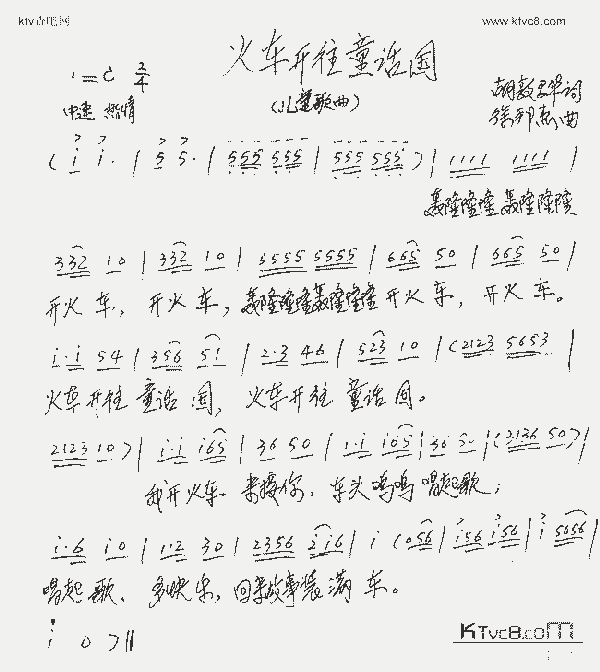 www.ktvc8.com
火车开往童话国
1=C 2/4
中速 热情
(儿童歌曲)
词
曲
(i i· | 5 5· | 555 555 | 555 555) | 1111 1111 |
轰隆隆隆轰隆隆隆
332 10 | 332 10 | 5555 5555 | 665 50 | 665 50 |
开火车，开火车，轰隆隆隆轰隆隆隆开火车，开火车。
i·i 54 | 356 5i | 2·3 46 | 523 10 | (2123 5653 |
火车开往童话国，火车开往童话国。
2123 10) | i·i i65 | 36 50 | i·i i65 | 36 5· | (2136 50) |
我开火车来接你，车头呜呜唱起歌；
i·6 i0 | 1·2 30 | 2356 2i6 | i (056 | i56 i56 | i 5656 |
唱起歌、多快乐，回来故事装满车。
i 0 )||
KTvc8.com